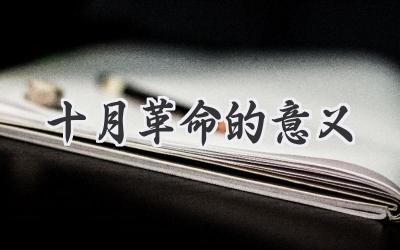 十月革命的意义